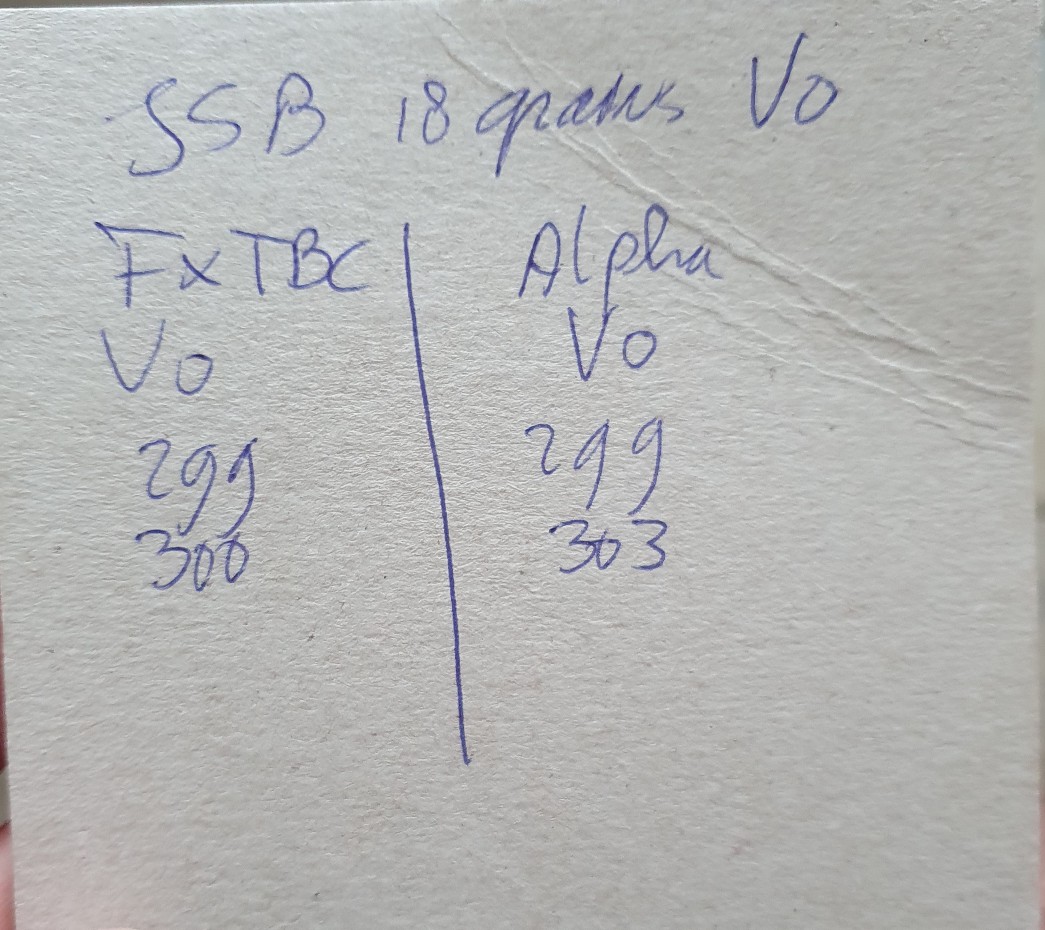 SSB 18 gradus Vo
FxTBC | Alpha
Vo Vo
299 299
300 303